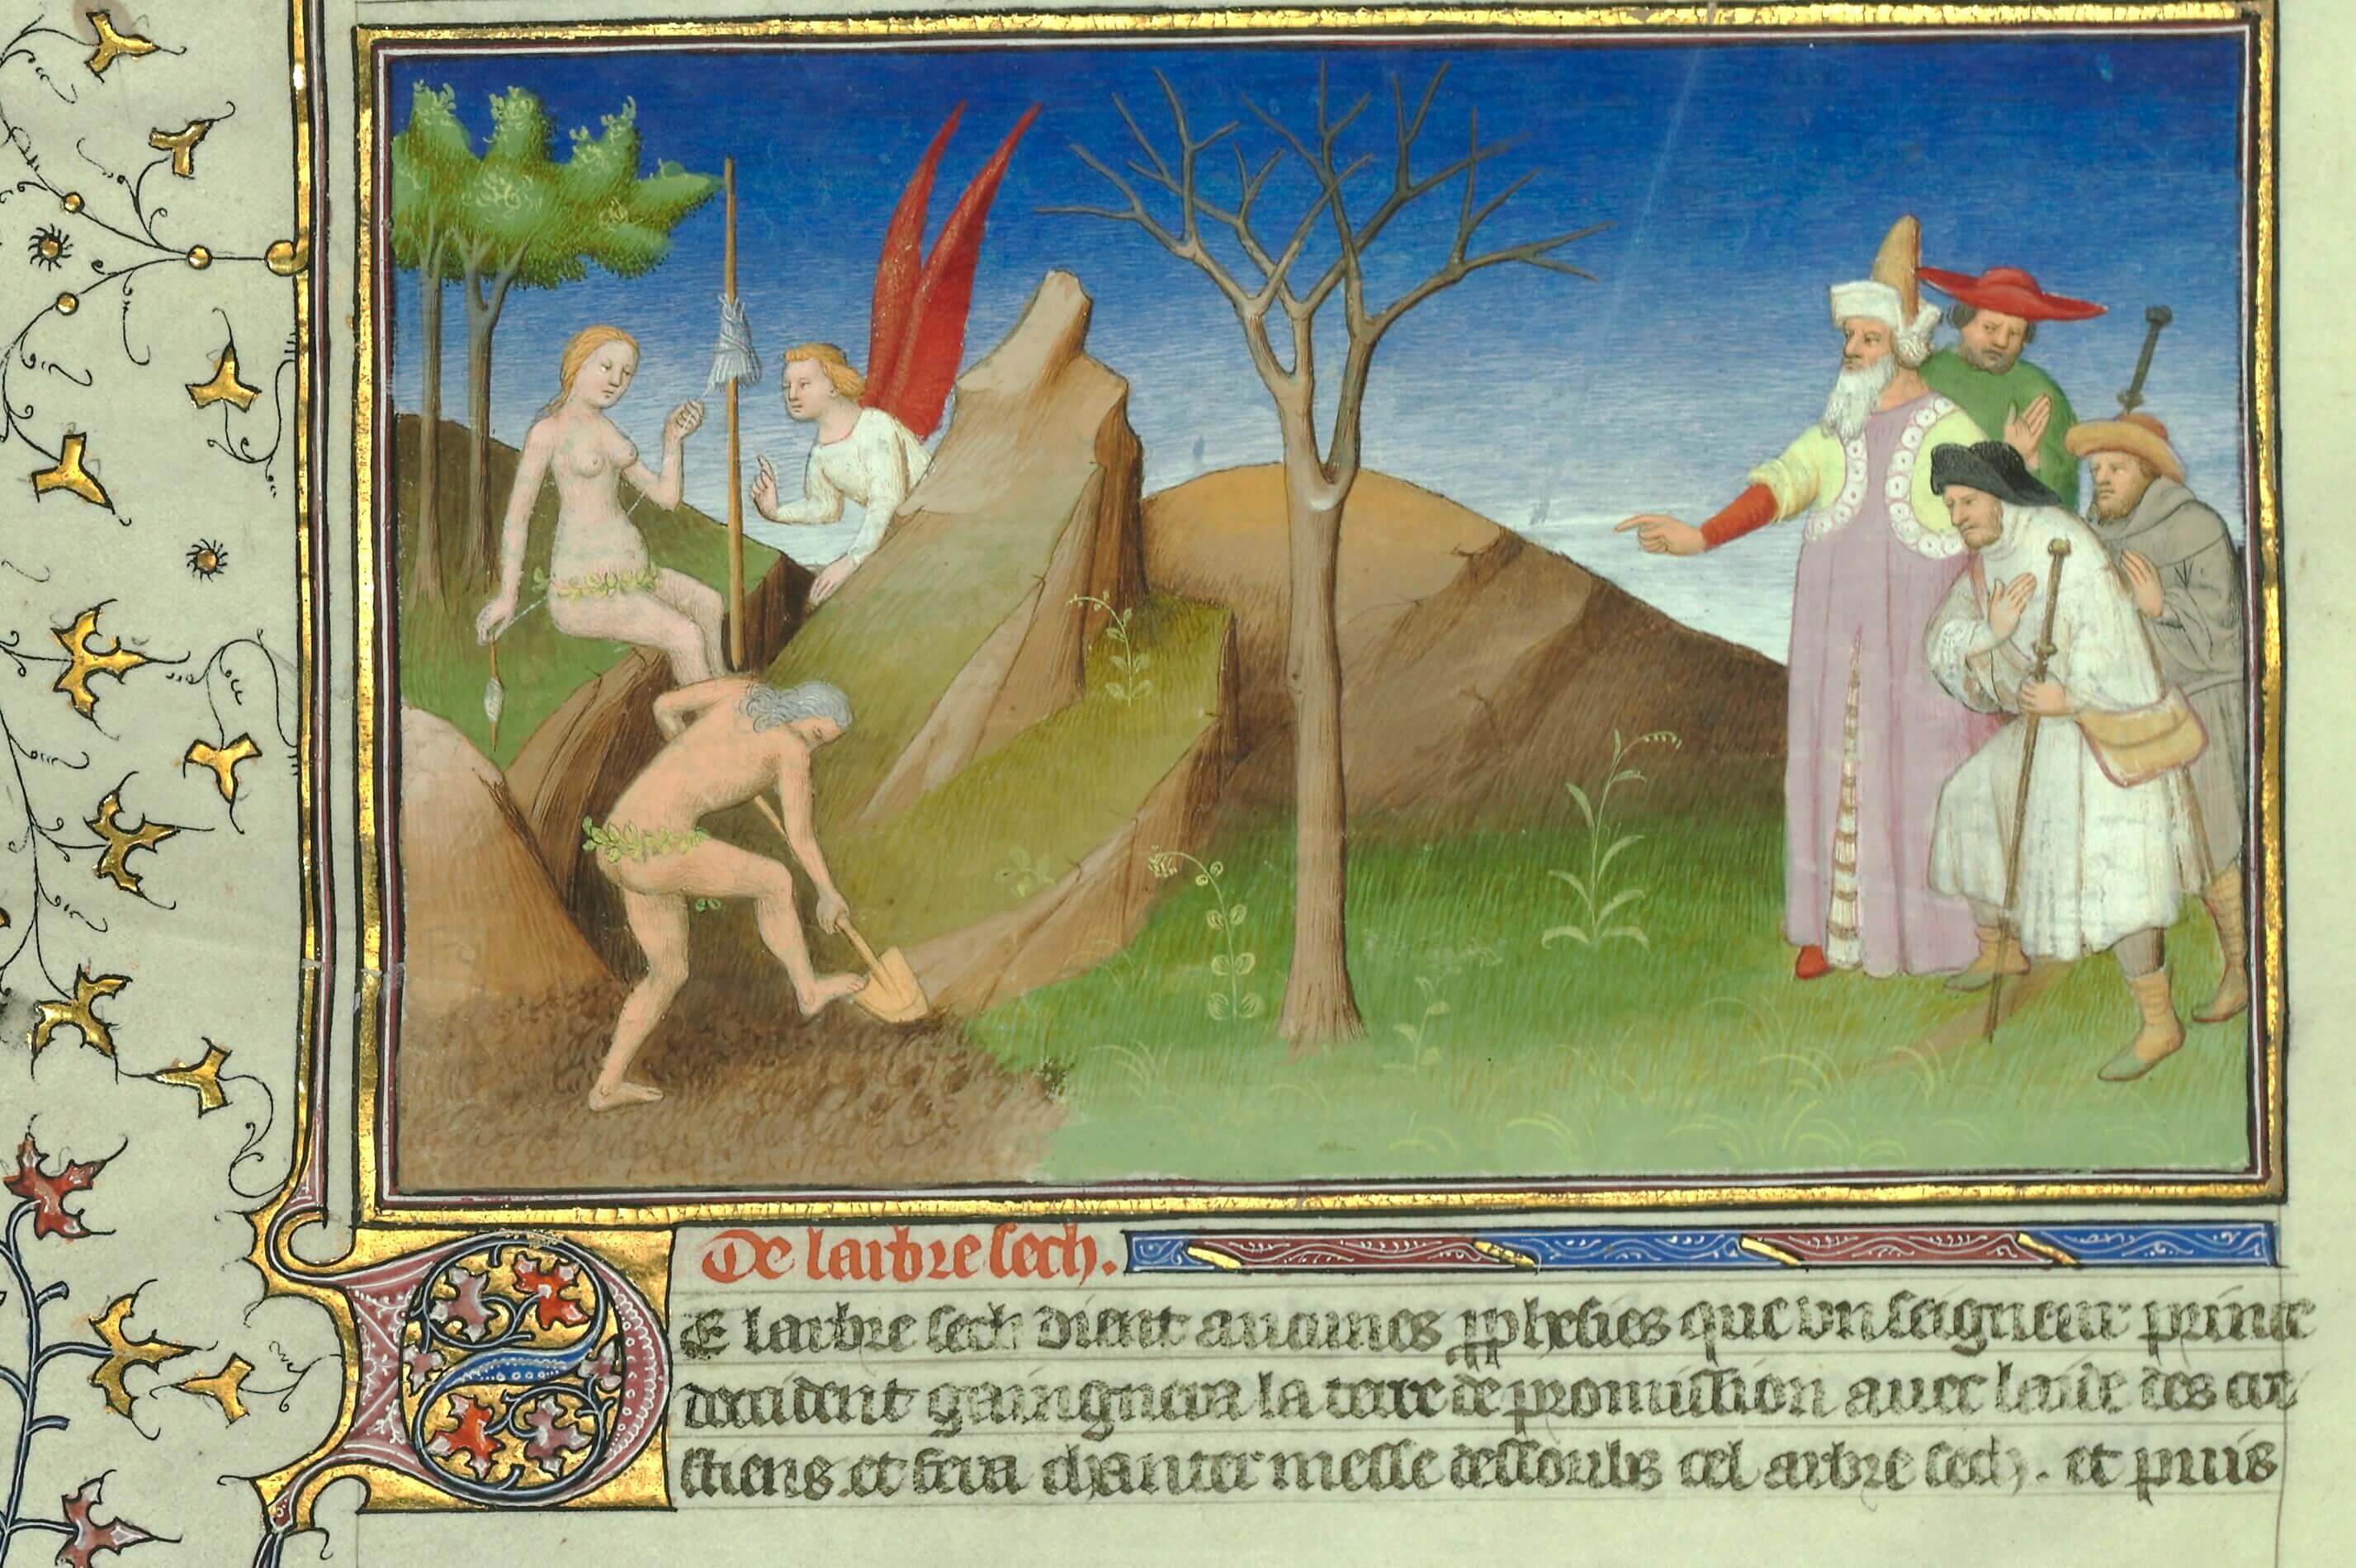 De larbre sech.
DE larbre sech dient aucunes prophesies que un seigneur prince
doccident gaingnera la terre de promission avec laide des cre
stiens et fera chanter messe dessoubz cel arbre sech. et puis